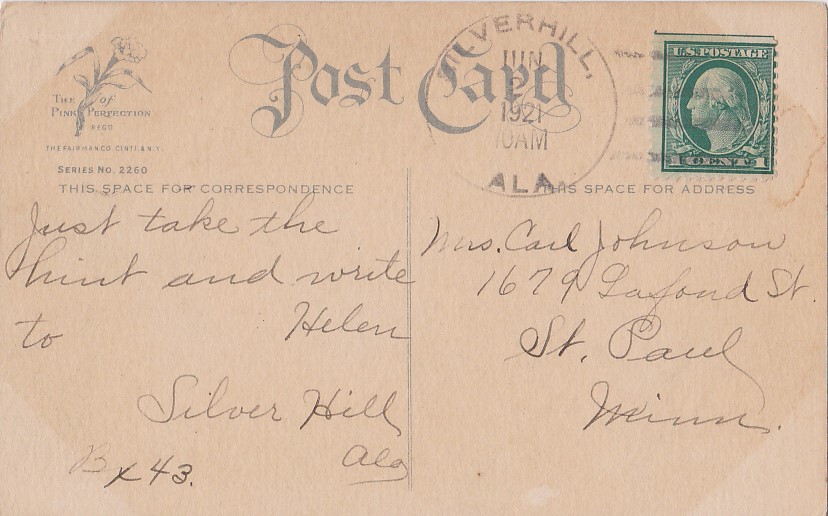 Post Card
SILVERHILL,
JUN
2
1921
10AM
ALA.
U.S. POSTAGE
1 CENT 1
THE PINK of PERFECTION
REGD
THE FAIRMAN CO. CINTI. & N.Y.
SERIES NO. 2260
THIS SPACE FOR CORRESPONDENCE
THIS SPACE FOR ADDRESS
Just take the
hint and write
to Helen
Silver Hill
Ala
Bx 43.
Mrs. Carl Johnson
1679 Lafond St.
St. Paul
Minn.